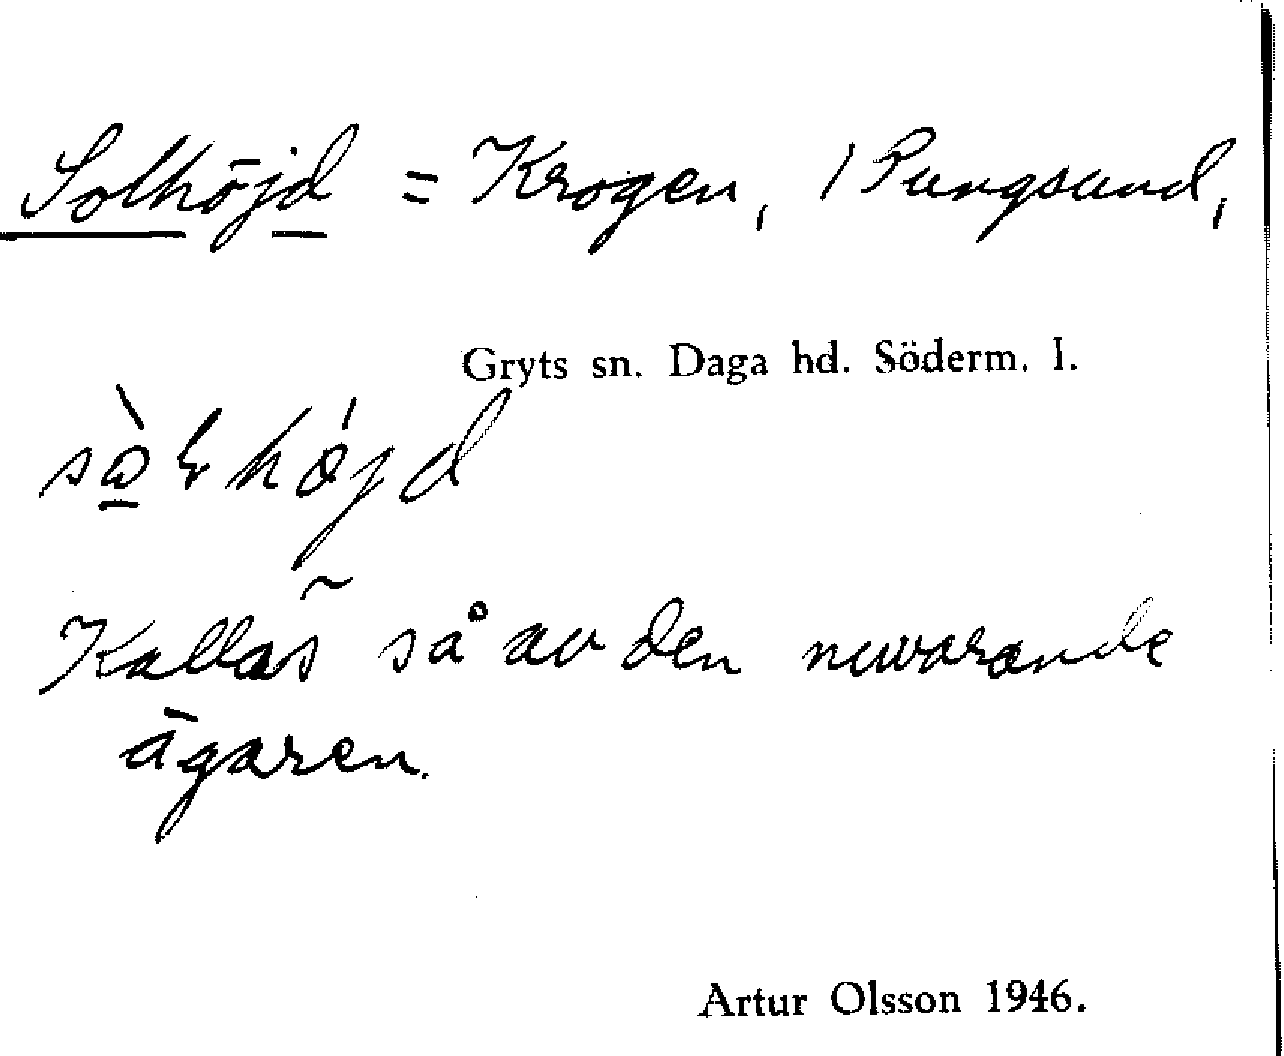 Solhöjd = Krogen, 1 Pungsund,
Gryts sn. Daga hd. Söderm. l.
Kallas så av den nuvarande
ägaren.
Artur Olsson 1946.